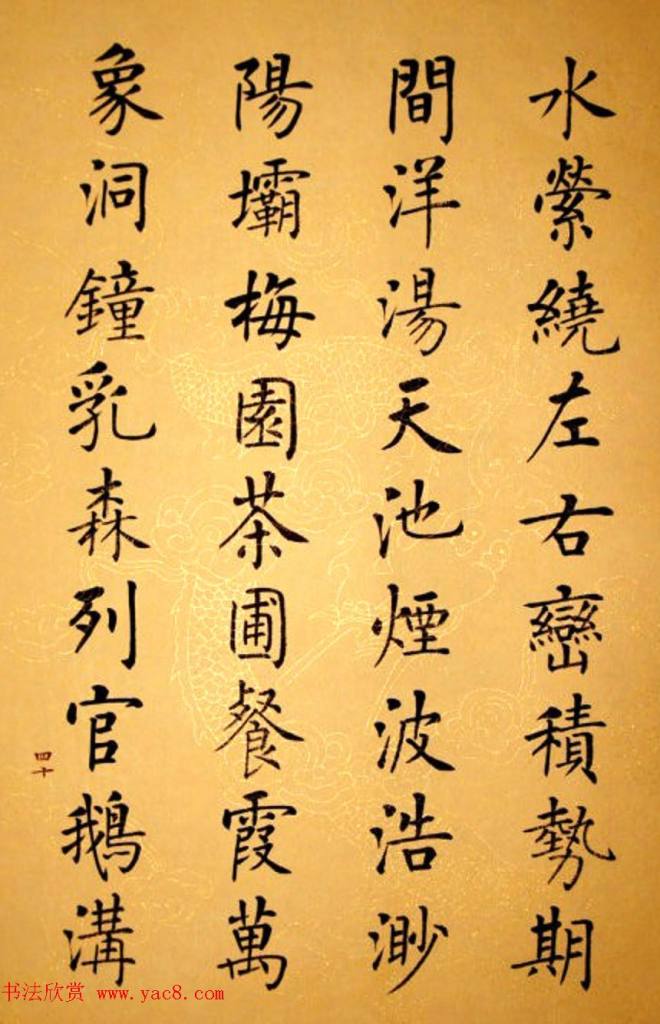 水縈繞左右巒積勢期
間洋湯天池煙波浩渺
陽壩梅園茶圃餐霞萬
象洞鐘乳森列官鵝溝
四十
书法欣赏 www.yac8.com